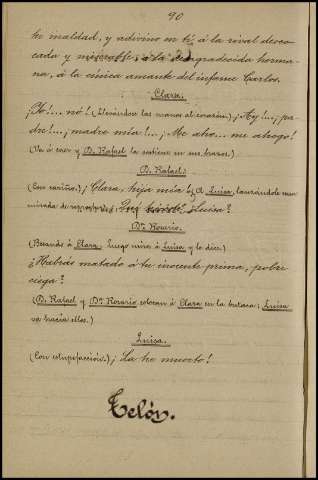 90
tu maldad, y adivino en tí, á la rival desco-
cada y miserable, á la desagradecida herma-
na, á la cínica amante del infame Carlos.
Clara.
¡Yo!... nó! (Llevándose las manos al corazón). ¡Ay!..., ¡pa-
dre!..., ¡madre mía!..., ¡Me aho... me ahogo!
(Va á caer y D. Rafael la sostiene en sus brazos.)
D. Rafael.
(Con cariño.) ¡Clara, hija mía! (A Luisa, lanzándole una
mirada de ¿ Luisa?
Dª Rosario.
(Besando á Clara. Luego mira á Luisa y le dice.)
¿Habrás matado á tu inocente prima, pobre
ciega?
(D. Rafael y Dª Rosario colocan á Clara en la butaca; Luisa
va hacia ellos.)
Luisa.
(Con estupefacción.) ¡La he muerto!
Telón.